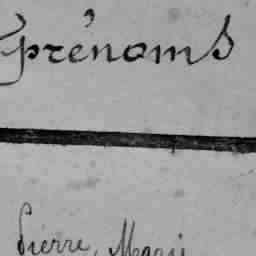 prénoms
Pierre, Marie